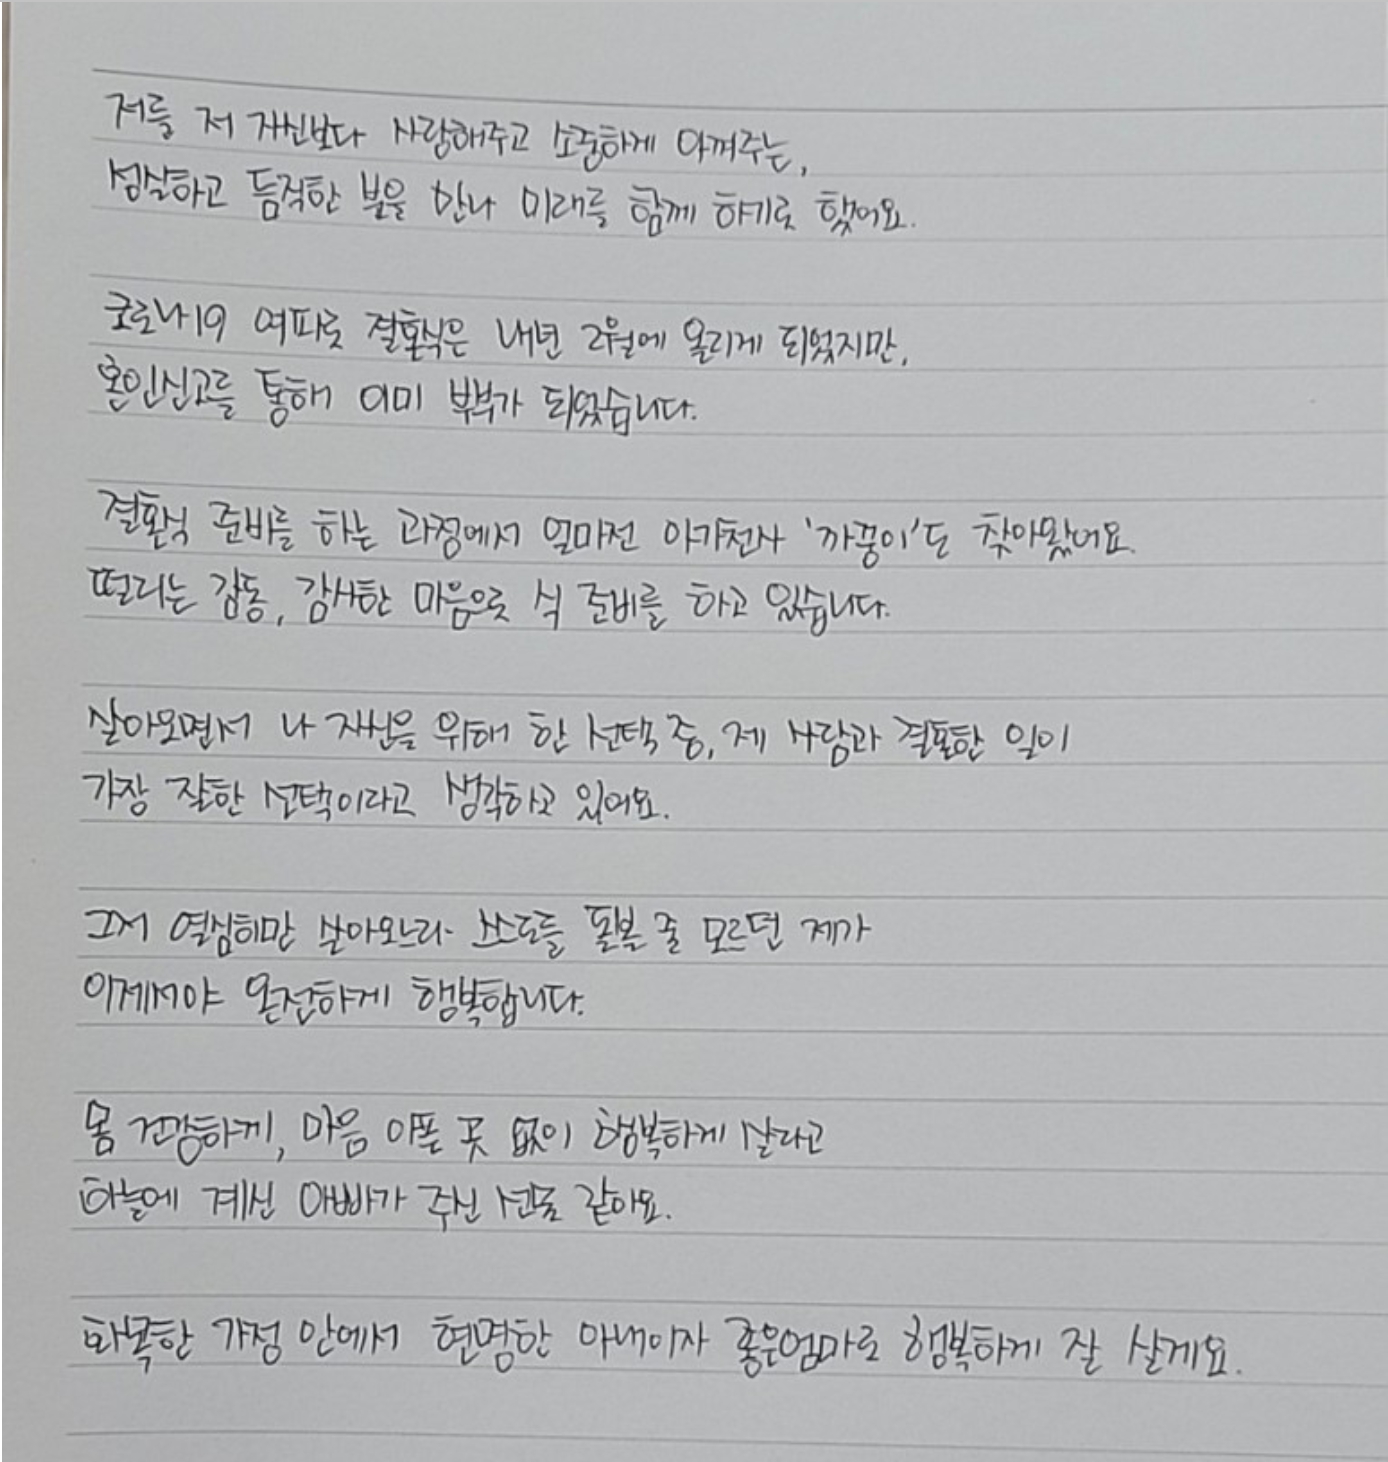 저를 저 자신보다 사랑해주고 소중하게 아껴주는,
성실하고 듬직한 분을 만나 미래를 함께 하기로 했어요.
코로나19 여파로 결혼식은 내년 2월에 올리게 되었지만,
혼인신고를 통해 이미 부부가 되었습니다.
결혼식 준비를 하는 과정에서 얼마전 아기천사 '까꿍이'도 찾아왔어요.
떨리는 감동, 감사한 마음으로 식 준비를 하고 있습니다.
살아오면서 나 자신을 위해 한 선택 중, 제 사람과 결혼한 일이
가장 잘한 선택이라고 생각하고 있어요.
그저 열심히만 살아오느라 스스로를 돌볼 줄 모르던 제가
이제서야 온전하게 행복합니다.
몸 건강하게, 마음 아픈 곳 없이 행복하게 살라고
하늘에 계신 아빠가 주신 선물 같아요.
화목한 가정 안에서 현명한 아내이자 좋은엄마로 행복하게 잘 살게요.